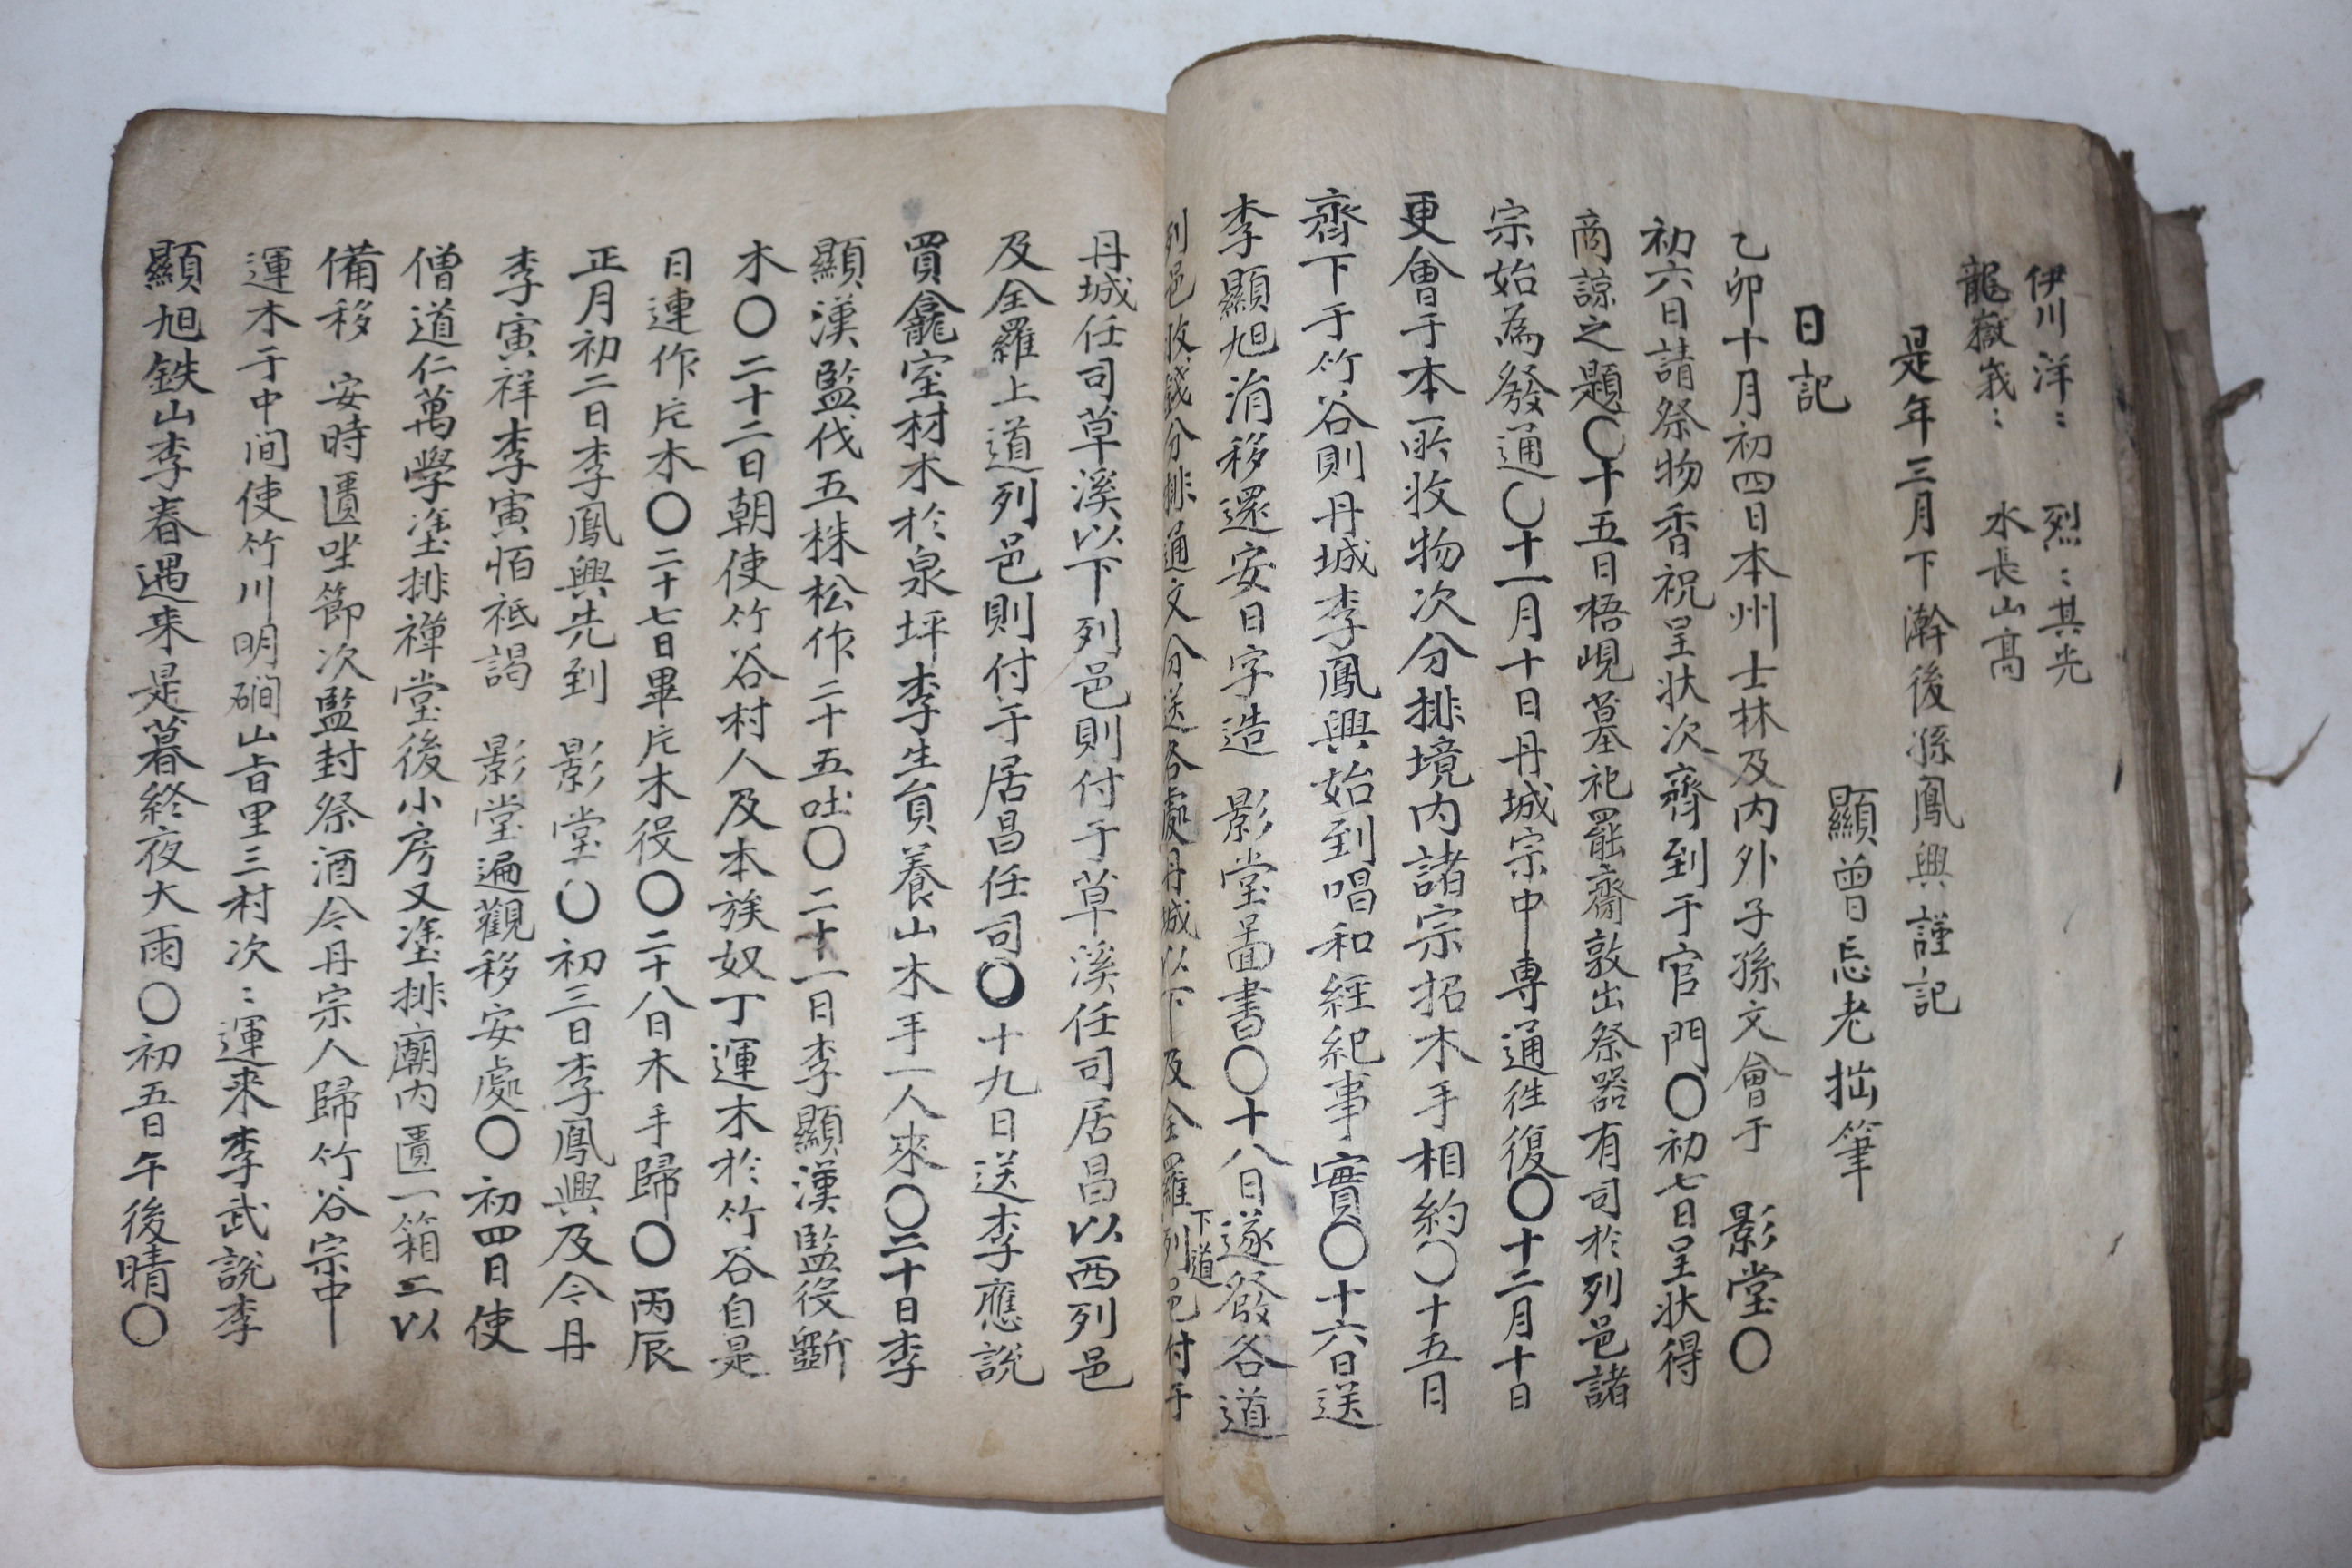 伊川洋〻 烈〻其光
龍嶽峩〻 水長山高
是年三月下澣後孫鳳興謹記
顯曾忘老拙筆
日記
乙卯十月初四日本州士林及内外子孫文會于 影堂〇
初六日請祭物香祝呈狀次齊到于官門〇初七日呈狀得
商諒之題〇十五日梧峴墓祀罷齋敦出祭器有司於列邑諸
宗始為發通〇十一月十日丹城宗中専通徃復〇十二月十日
更會于本所收物次分排境内諸宗招木手相約〇十五日
齊下于竹谷則丹城李鳳興始到唱和經紀事實〇十六日送
李顯旭涓移還安日字造 影堂啚書〇十八日遂發各道
列邑收錢分排通文分送各處丹城以下及全羅下道列邑付于
丹城任司草溪以下列邑則付于草溪任司居昌以西列邑
及全羅上道列邑則付于居昌任司〇十九日送李應說
買龕室材木於泉坪李生員養山木手一人來〇二十日李
顯漢監伐五株松作二十五吐〇二十一日李顯漢監役斷
木〇二十二日朝使竹谷村人及本族奴丁運木於竹谷自是
日連作片木〇二十七日畢片木役〇二十八日木手歸〇丙辰
正月初二日李鳳興先到 影堂〇初三日李鳳興及今丹
李寅祥李寅栢祗謁 影堂遍觀移安處〇初四日使
僧道仁萬學塗排禅堂後小房又塗排廟内匱一箱二以
備移 安時匱㘴節次監封祭酒今丹宗人歸竹谷宗中
運木于中间使竹川明磵山旨里三村次〻運来李武說李
顯旭鉄山李春遇来是暮終夜大雨〇初五日午後晴〇